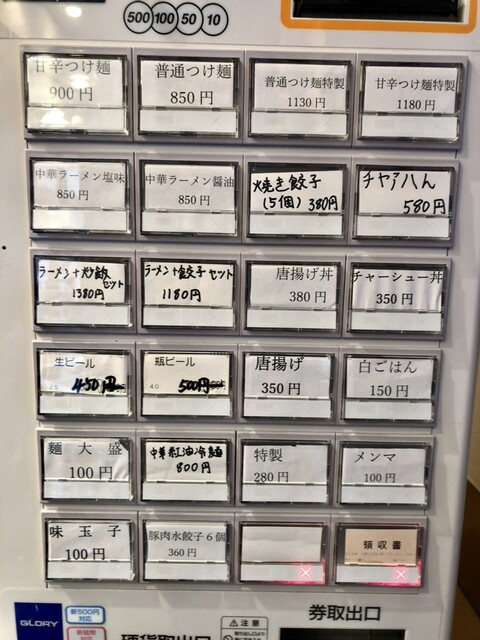 500 100 50 10
甘辛つけ麺
900円
普通つけ麺
850円
普通つけ麺特製
1130円
甘辛つけ麺特製
1180円
中華ラーメン塩味
850円
中華ラーメン醤油
850円
焼き餃子
(5個) 380円
チャアハん
580円
ラーメン+炒飯
セット
1380円
ラーメン+餃子セット
1180円
唐揚げ丼
380円
チャーシュー丼
350円
生ビール
450円
瓶ビール
500円
唐揚げ
350円
白ごはん
150円
麺大盛
100円
中華紅油冷麺
800円
特製
280円
メンマ
100円
味玉子
100円
豚肉水餃子6個
360円
領収書
GLORY
新500円
対応
新紙幣
硬貨取出口
注意
券取出口